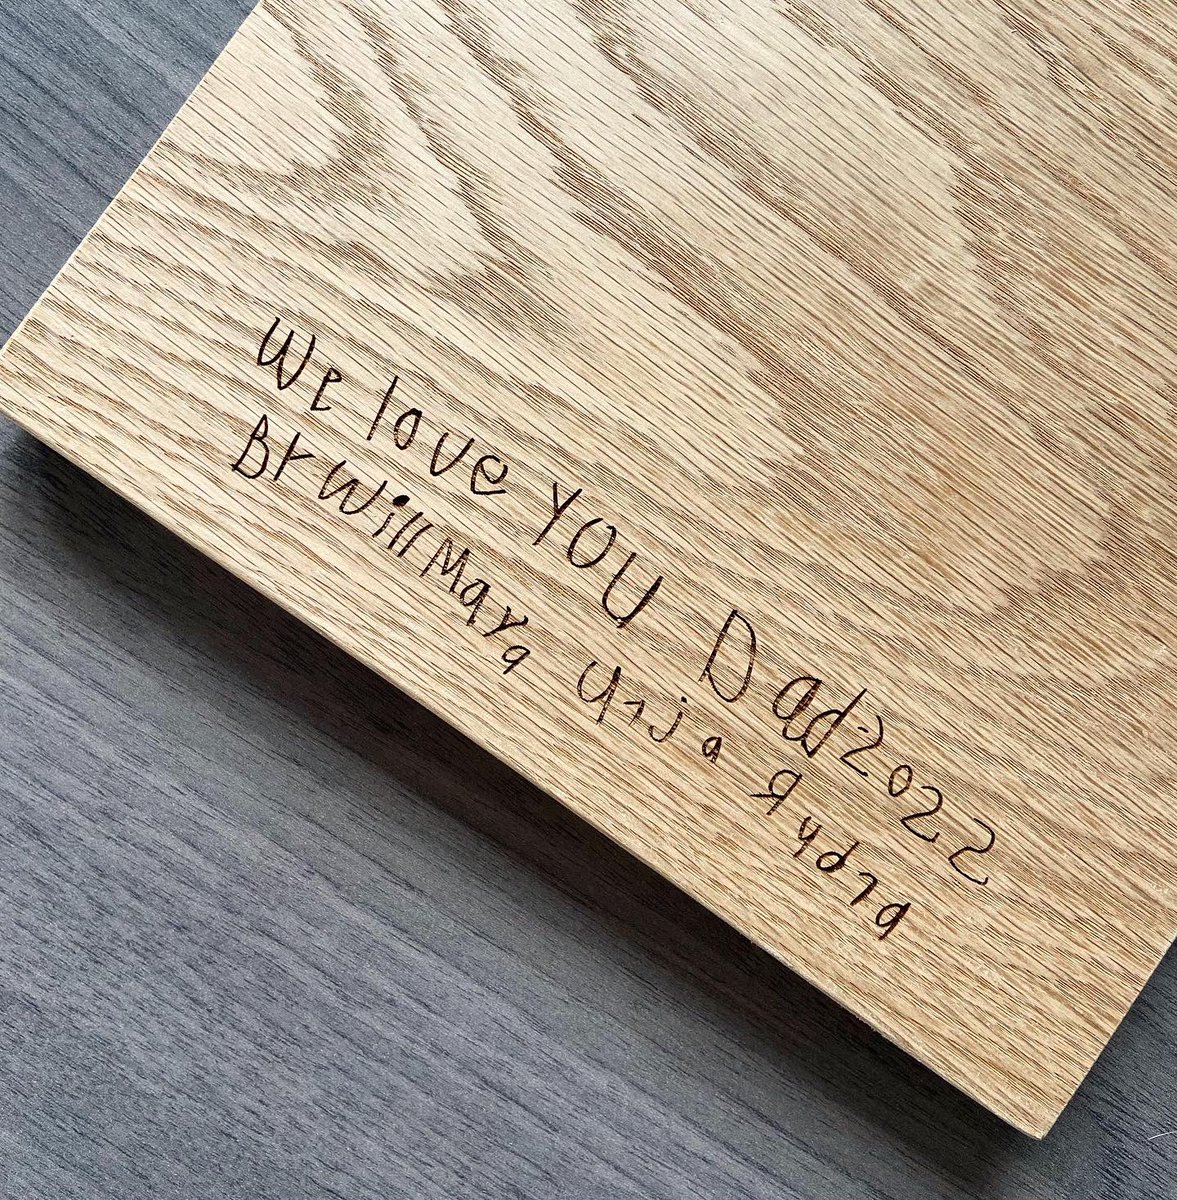 We love YOU Dad 2022
BY Will Maya Urja Rudra